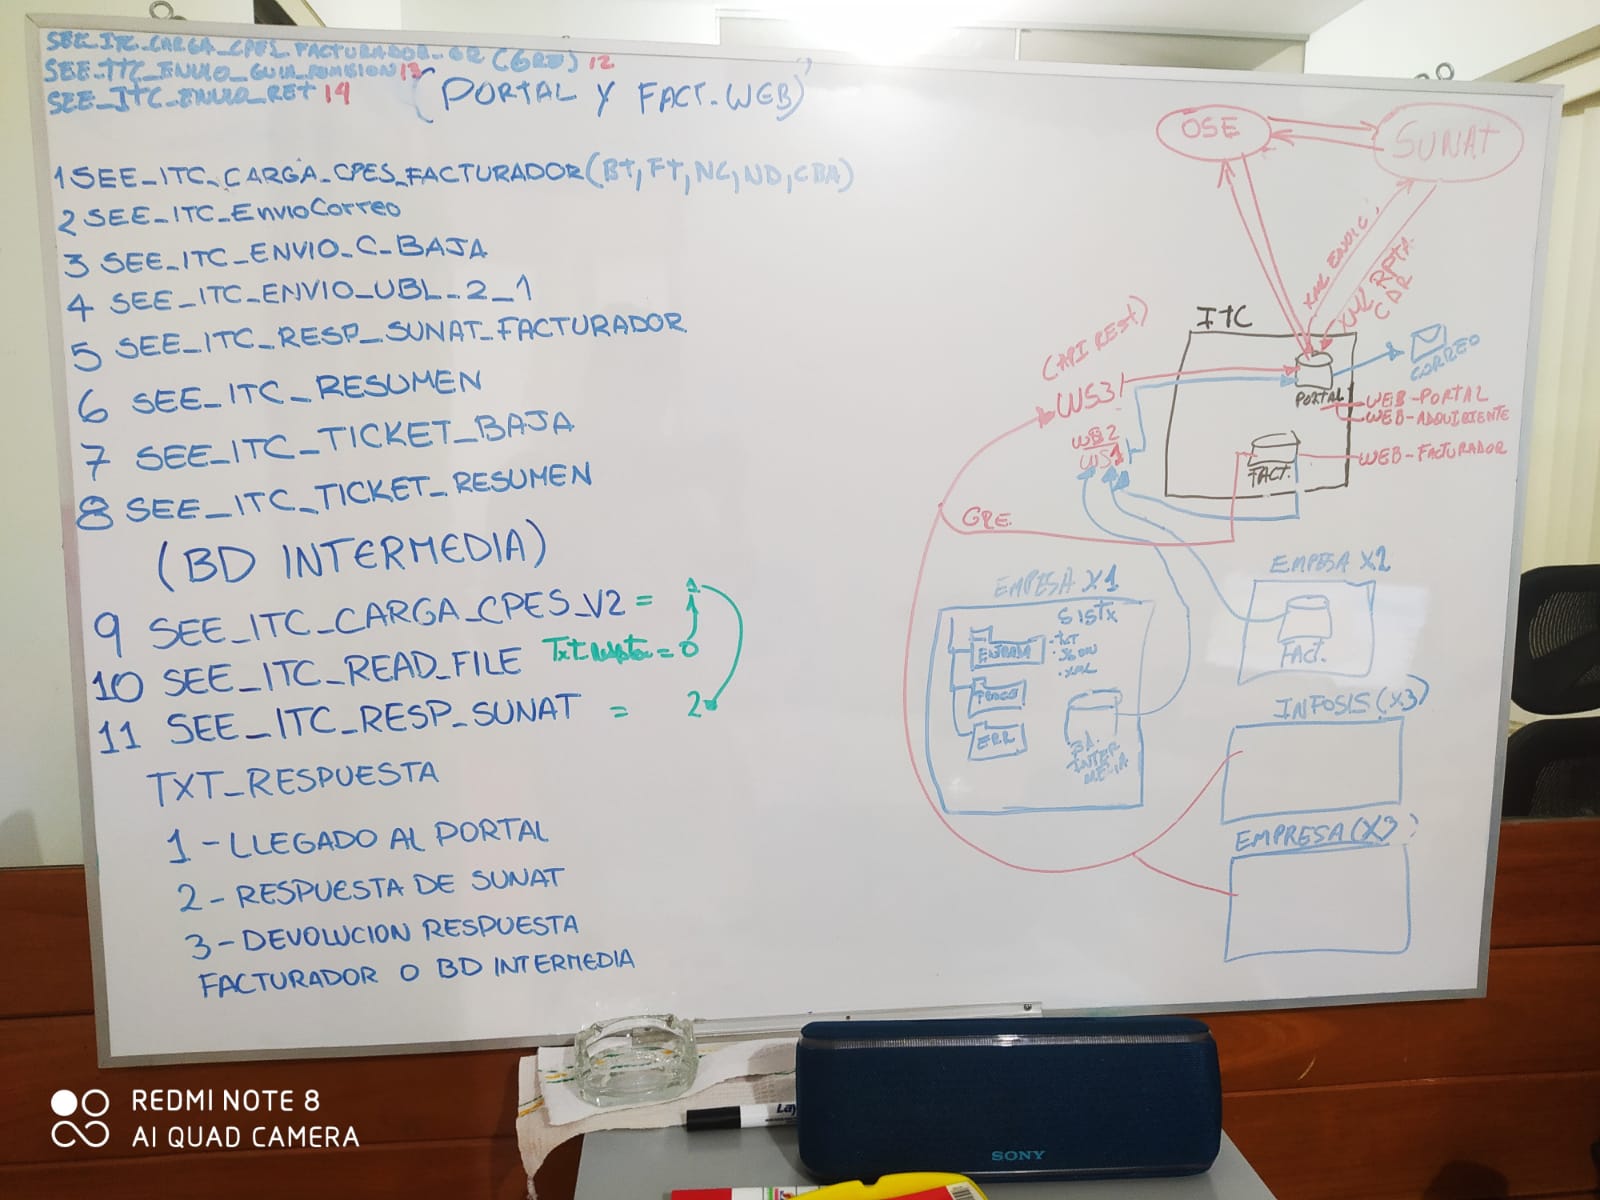 SEE_ITC_CARGA_CPES_FACTURADOR_GR (GRE) 12
SEE_ITC_ENVIO_GUIA_REMISION 13
SEE_ITC_ENVIO_RET 14
(PORTAL Y FACT. WEB)
1 SEE_ITC_CARGA_CPES_FACTURADOR(Bt, Ft, NC, ND, CBA)
2 SEE_ITC_EnvioCorreo
3 SEE_ITC_ENVIO_C_BAJA
4 SEE_ITC_ENVIO_UBL_2_1
5 SEE_ITC_RESP_SUNAT_FACTURADOR
6 SEE_ITC_RESUMEN
7 SEE_ITC_TICKET_BAJA
8 SEE_ITC_TICKET_RESUMEN
(BD INTERMEDIA)
9 SEE_ITC_CARGA_CPES_V2 = 1
10 SEE_ITC_READ_FILE Txt = 0
11 SEE_ITC_RESP_SUNAT = 2
TXT_RESPUESTA
1 - LLEGADO AL PORTAL
2 - RESPUESTA DE SUNAT
3 - DEVOLUCION RESPUESTA
FACTURADOR O BD INTERMEDIA
OSE
SUNAT
XML
XML RPTA
CDR
ITC
CORREO
PORTAL
WEB-PORTAL
WEB-ADQUIRIENTE
FACT.
WEB-FACTURADOR
(API REST)
WS3
WS2
WS1
GRE
EMPESA X1
SISTX
ENTRADA
.txt
.JSON
.XML
ERR
BD.
INTER
MEDIA
EMPESA X2
FACT.
INFOSIS (X3)
EMPRESA (X3)
REDMI NOTE 8
AI QUAD CAMERA
Lay
SONY